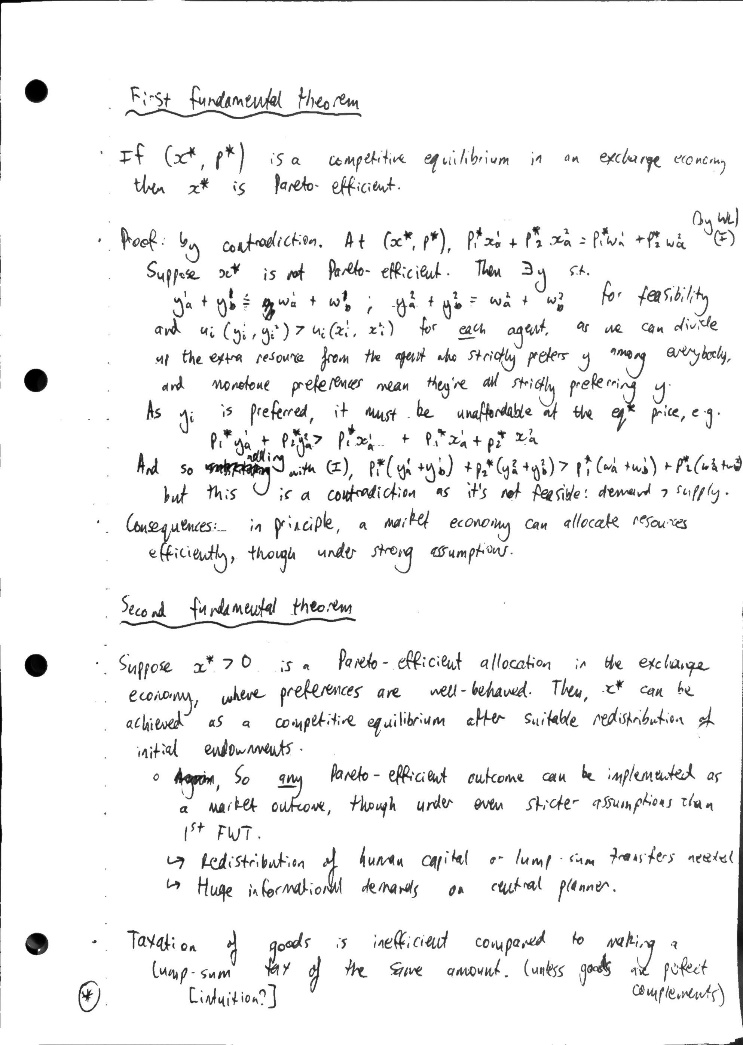 First fundamental theorem
· If (x*, p*) is a competitive equilibrium in an exchange economy
then x* is Pareto-efficient.
(by WL)
· Proof: by contradiction. At (x*, p*), p₁*xₐ¹ + p₂*xₐ² = p₁*wₐ¹ + p₂*wₐ² (I)
Suppose x* is not Pareto-efficient. Then ∃y s.t.
yₐ¹ + y_b¹ = wₐ¹ + w_b¹ ; yₐ² + y_b² = wₐ² + w_b² for feasibility
and uᵢ(yᵢ¹, yᵢ²) > uᵢ(xᵢ¹, xᵢ²) for each agent, as we can divide
up the extra resource from the agent who strictly prefers y among everybody,
and monotone preferences mean they're all strictly preferring y.
As yᵢ is preferred, it must be unaffordable at the eq* price, e.g.
p₁*yₐ¹ + p₂*yₐ² > p₁*xₐ¹ .. + p₁*xₐ¹ + p₂* xₐ²
And so adding with (I), p₁*(yₐ¹+y_b¹) + p₂*(yₐ²+y_b²) > p₁*(wₐ¹+w_b¹) + p₂*(wₐ²+w_b²)
but this is a contradiction as it's not feasible: demand > supply.
· Consequences:- in principle, a market economy can allocate resources
efficiently, though under strong assumptions.
Second fundamental theorem
· Suppose x* > 0 is a Pareto-efficient allocation in the exchange
economy, where preferences are well-behaved. Then, x* can be
achieved as a competitive equilibrium after suitable redistribution of
initial endowments.
○ So any Pareto-efficient outcome can be implemented as
a market outcome, though under even sticter assumptions than
1st FWT.
↳ Redistribution of human capital or lump-sum transfers needed
↳ Huge informational demands on central planner.
· Taxation of goods is inefficient compared to making a
lump-sum tax of the same amount. (unless goods are perfect
complements)
(*) [intuition?]